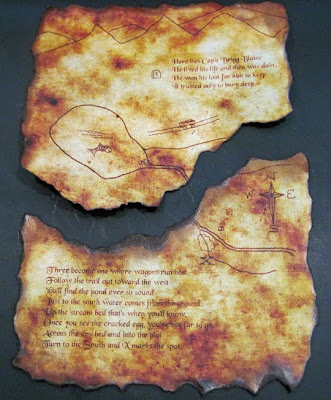 Here lies Cap'n Brigg Blaine
He lived his life and then was slain.
He won his loot for him to keep
It trusted only to bury deep.
W E
Three become one where wagons run best.
Follow the trail out toward the west
You'll find the pond ever so sound.
Just to the south water comes from the ground.
Up the stream bed that's when you'll know.
Once you see the cracked egg, you've not far to go.
Across the dry bed and into the plot
Turn to the South and X marks the spot.